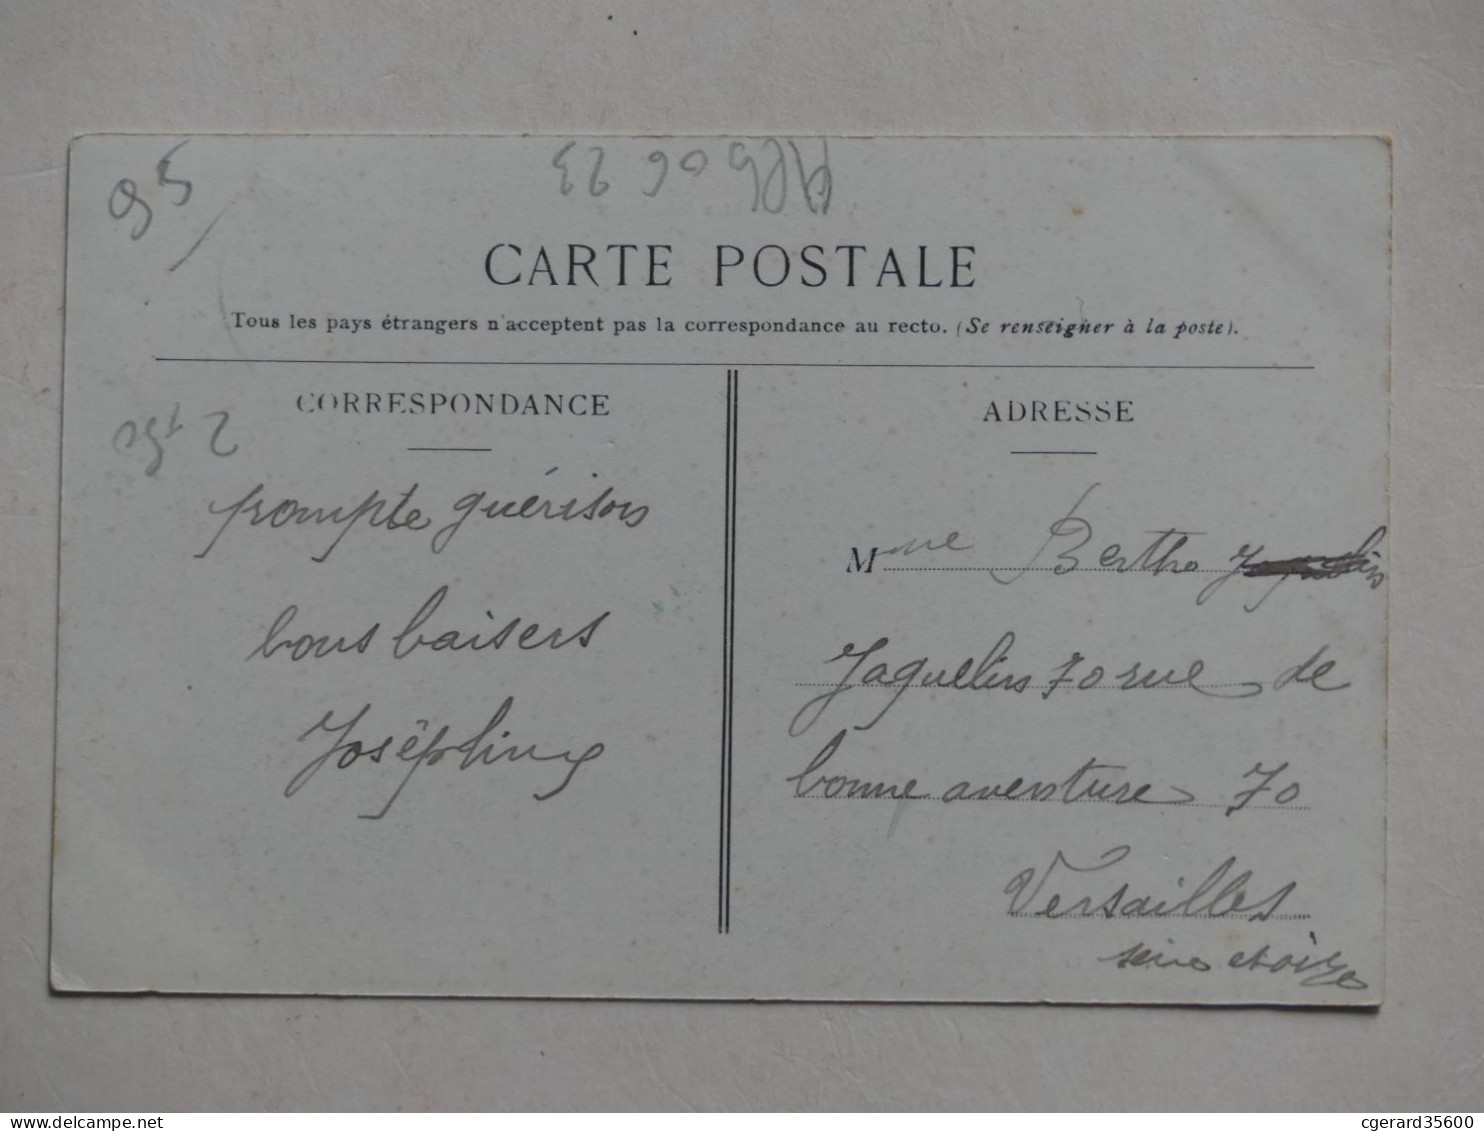 95
CARTE POSTALE
Tous les pays étrangers n'acceptent pas la correspondance au recto. (Se renseigner à la poste).
CORRESPONDANCE
prompte guérison
bons baisers
Josèphine
ADRESSE
Mme Berthe
Jaquelin 70 rue de
bonne aventure 70
Versailles
seine et oize
delcampe.net
cgerard35600